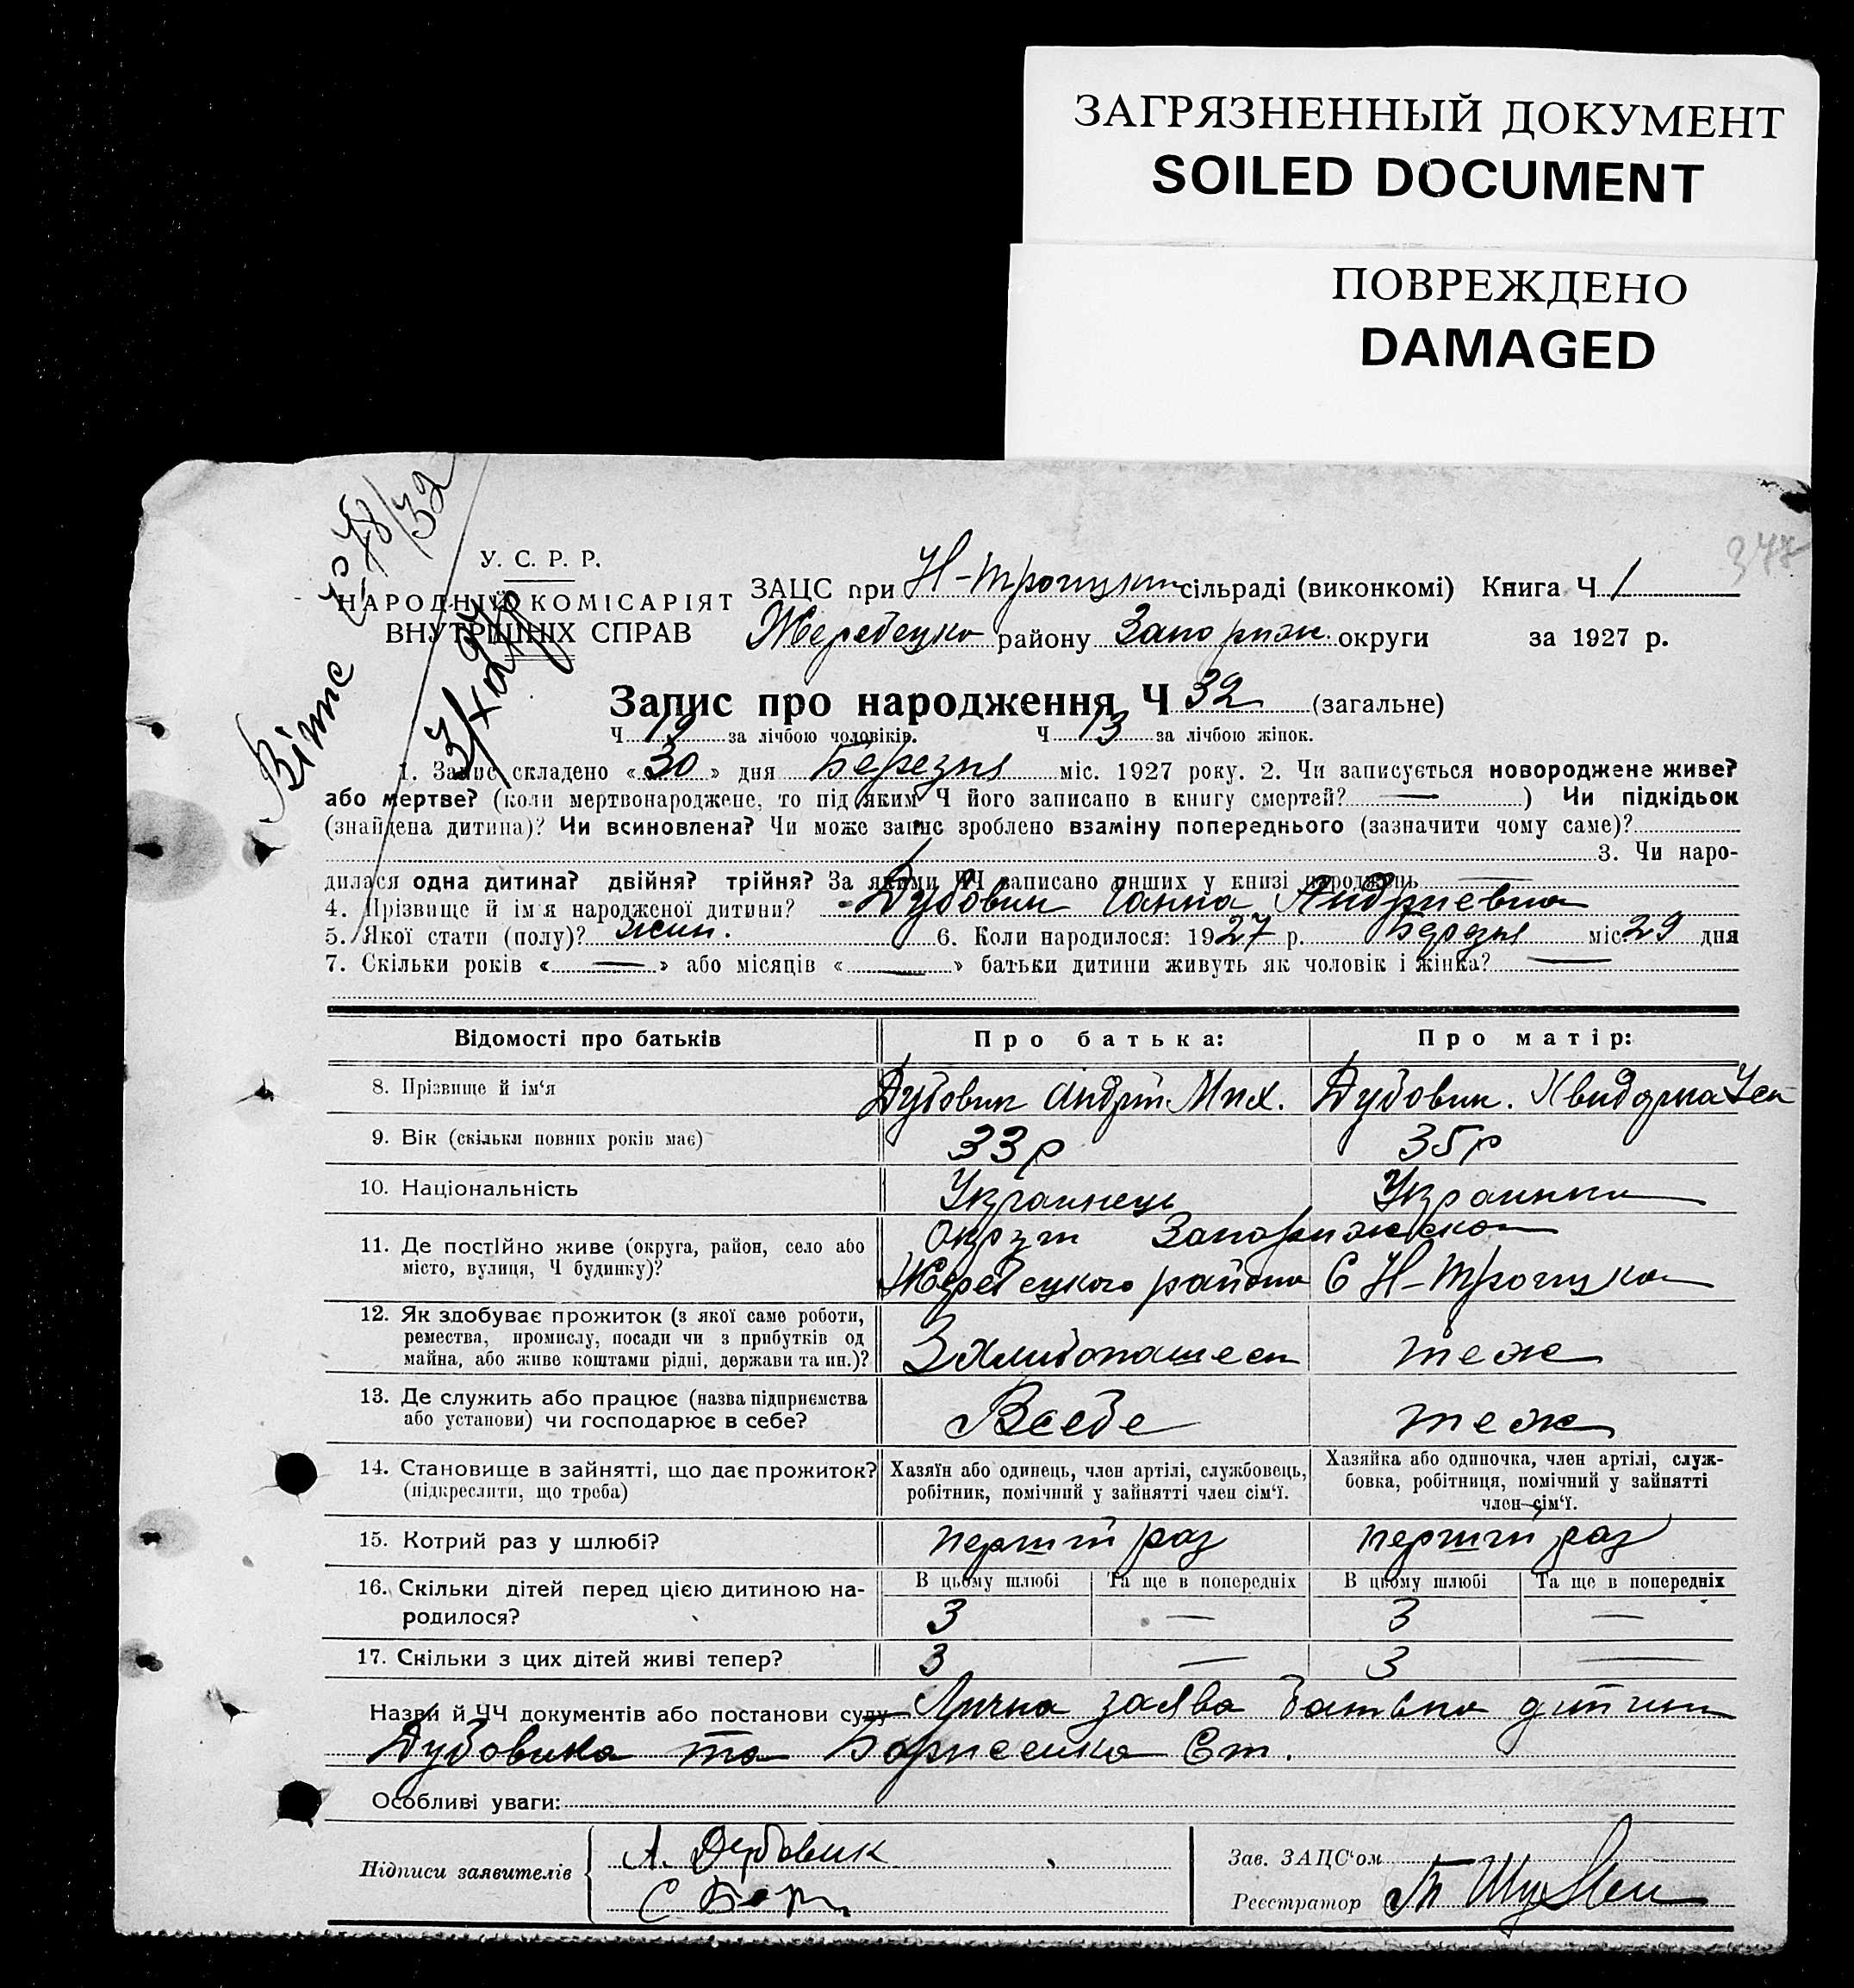 ЗАГРЯЗНЕННЫЙ ДОКУМЕНТ
SOILED DOCUMENT
ПОВРЕЖДЕНО
DAMAGED
У. С. Р. Р.
НАРОДНІЙ КОМІСАРІЯТ
ВНУТРІШНІХ СПРАВ
ЗАЦС при Н-Троицкит сільраді (виконкомі) Книга Ч 1
Жеребецько району Запорізьк. округи за 1927 р.
Запис про народження Ч 32 (загальне)
Ч 19 за лічбою чоловіків. Ч 13 за лічбою жінок.
1. Запис складено «30» дня Березня міс. 1927 року. 2. Чи записується новороджене живе?
або мертве? (коли мертвонароджене, то під яким Ч його записано в книгу смертей? —) Чи підкідьок
(знайдена дитина)? Чи всиновлена? Чи може запис зроблено взаміну попереднього (зазначити чому саме)?
3. Чи наро-
дилася одна дитина? двійня? трійня? За якими ЧЧ записано инших у книзі народжень —
4. Прізвище й ім'я народженої дитини? Дубовик Ганна Андриевна
5. Якої стати (полу)? жин. 6. Коли народилося: 1927 р. Березня міс. 29 дня
7. Скільки років «—» або місяців «—» батьки дитини живуть як чоловік і жінка? —
Відомості про батьків Про батька: Про матір:
8. Прізвище й ім'я Дубовик Андрій Мих. Дубовик. Хвидорка
9. Вік (скільки повних років має) 33 р 35 р
10. Національність Украинець Украинка
11. Де постійно живе (округа, район, село або
місто, вулиця, Ч будинку)?
Округи
Жеребецкого района С Н-Троицка
12. Як здобуває прожиток (з якої саме роботи,
ремества, промислу, посади чи з прибутків од
майна, або живе коштами рідні, держави та ин.)?
З теж
13. Де служить або працює (назва підприємства
або установи) чи господарює в себе?
Всебе теж
14. Становище в зайнятті, що дає прожиток?
(підкреслити, що треба)
Хазяїн або одинець, член артілі, службовець,
робітник, помічний у зайнятті член сім'ї.
Хазяйка або одиночка, член артілі, служ-
бовка, робітниця, помічний у зайнятті
член сім'ї.
15. Котрий раз у шлюбі? перший раз перший раз
16. Скільки дітей перед цією дитиною на-
родилося?
В цьому шлюбі Та ще в попередніх В цьому шлюбі Та ще в попередніх
3 — 3 —
17. Скільки з цих дітей живі тепер? 3 — 3 —
Назви й ЧЧ документів або постанови суду Лична заява батька дитини
Дубовика та Борисенка Ст.
Особливі уваги:
Підписи заявителів
А. Дубовик
С Бор
Зав. ЗАЦС'ом
Реєстратор